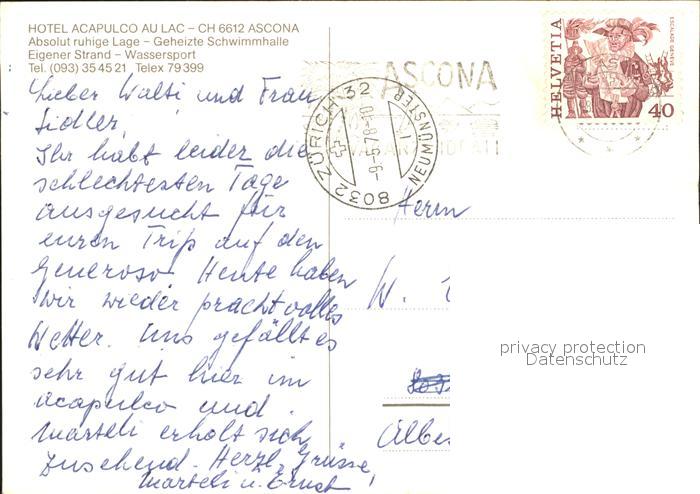 HOTEL ACAPULCO AU LAC – CH 6612 ASCONA
Absolut ruhige Lage – Geheizte Schwimmhalle
Eigener Strand – Wassersport
Tel. (093) 35 45 21 Telex 79 399
Lieber Walti und Frau
Sidler,
Ihr habt leider die
schlechtesten Tage
ausgesucht für
euren Trip auf den
Generoso. Heute haben
wir wieder prachtvolles
Wetter. Uns gefällt es
sehr gut hier im
Acapulco und
Marteli erholt sich
zusehend. Herzl. Grüsse,
Marteli u. Ernst
ASCONA
8032 ZÜRICH 32
NEUMÜNSTER
HELVETIA
ESCALADE GENÈVE
40
Herrn
W.
privacy protection
Datenschutz